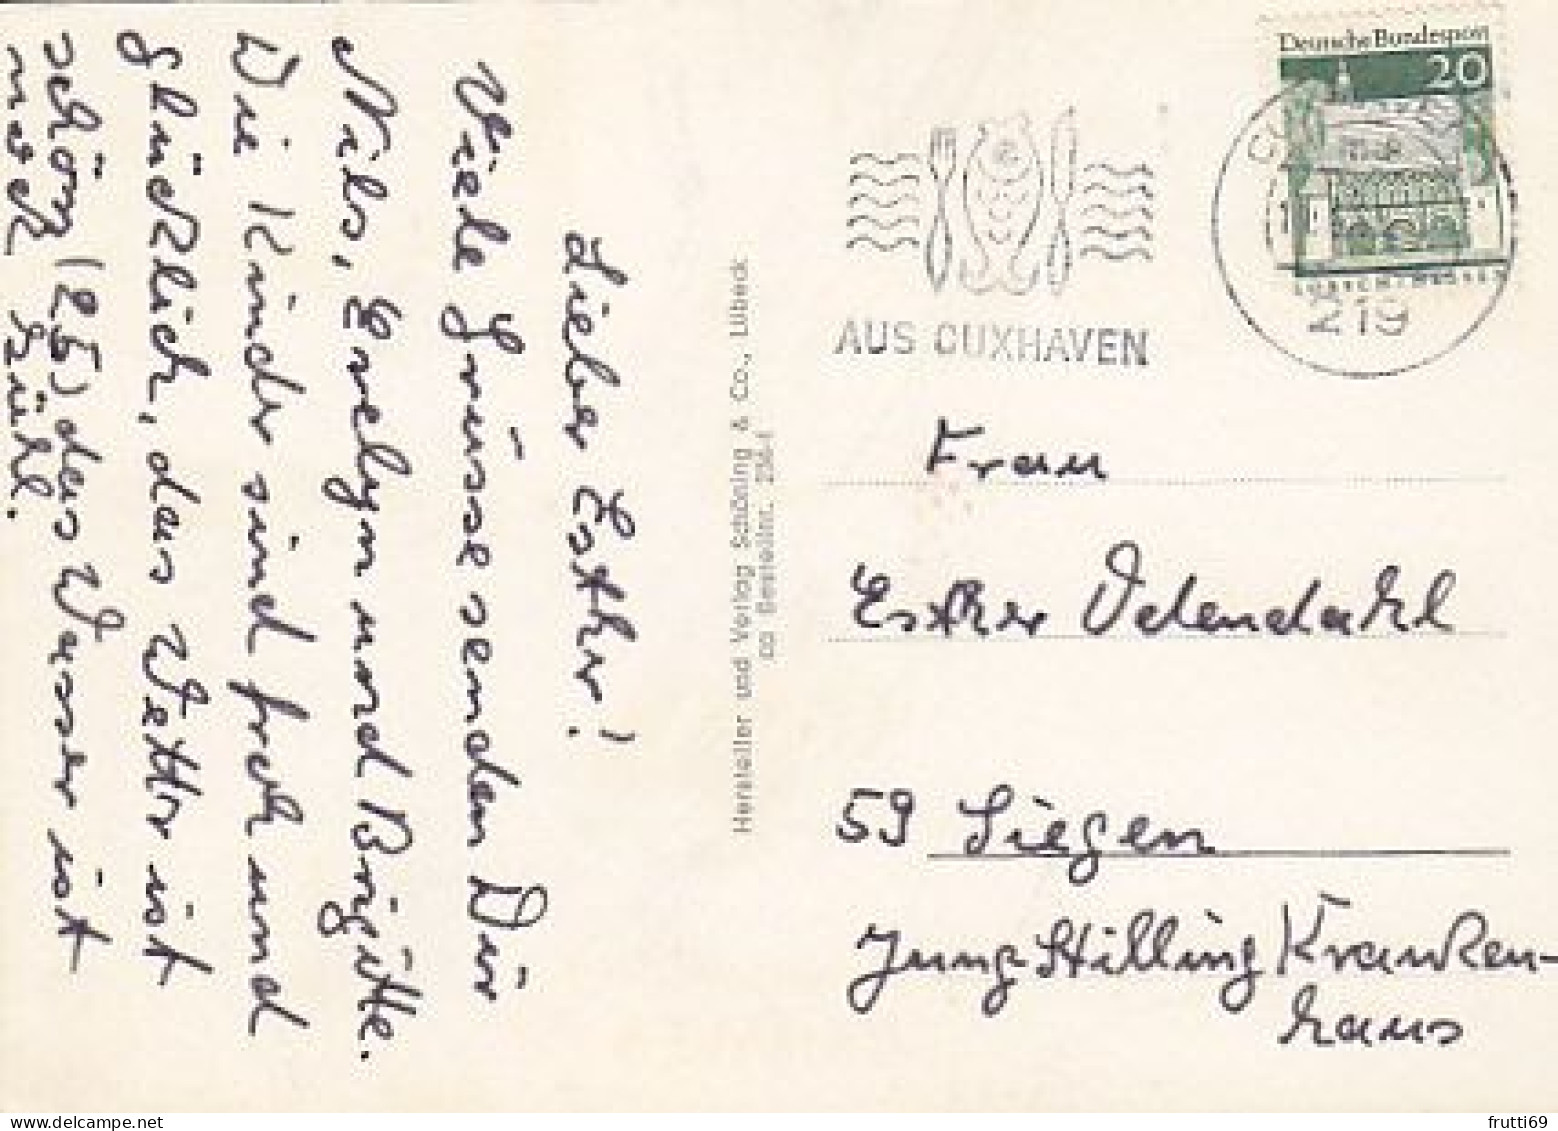 Lieber Esther!
Viele Grüsse senden Dir
Nils, Evelyn und Brigitte.
Die Kinder sind froh und
glücklich, das Wetter ist
schön (25) das Wasser ist
noch kühl.
Hersteller und Verlag Schöning & Co., Lübeck
Bestellnr.
Deutsche Bundespost
20
LORSCH/HESSEN
219
AUS CUXHAVEN
Frau
Esther Odendahl
59 Siegen
Jung Stilling Kranken-
haus
frutti69